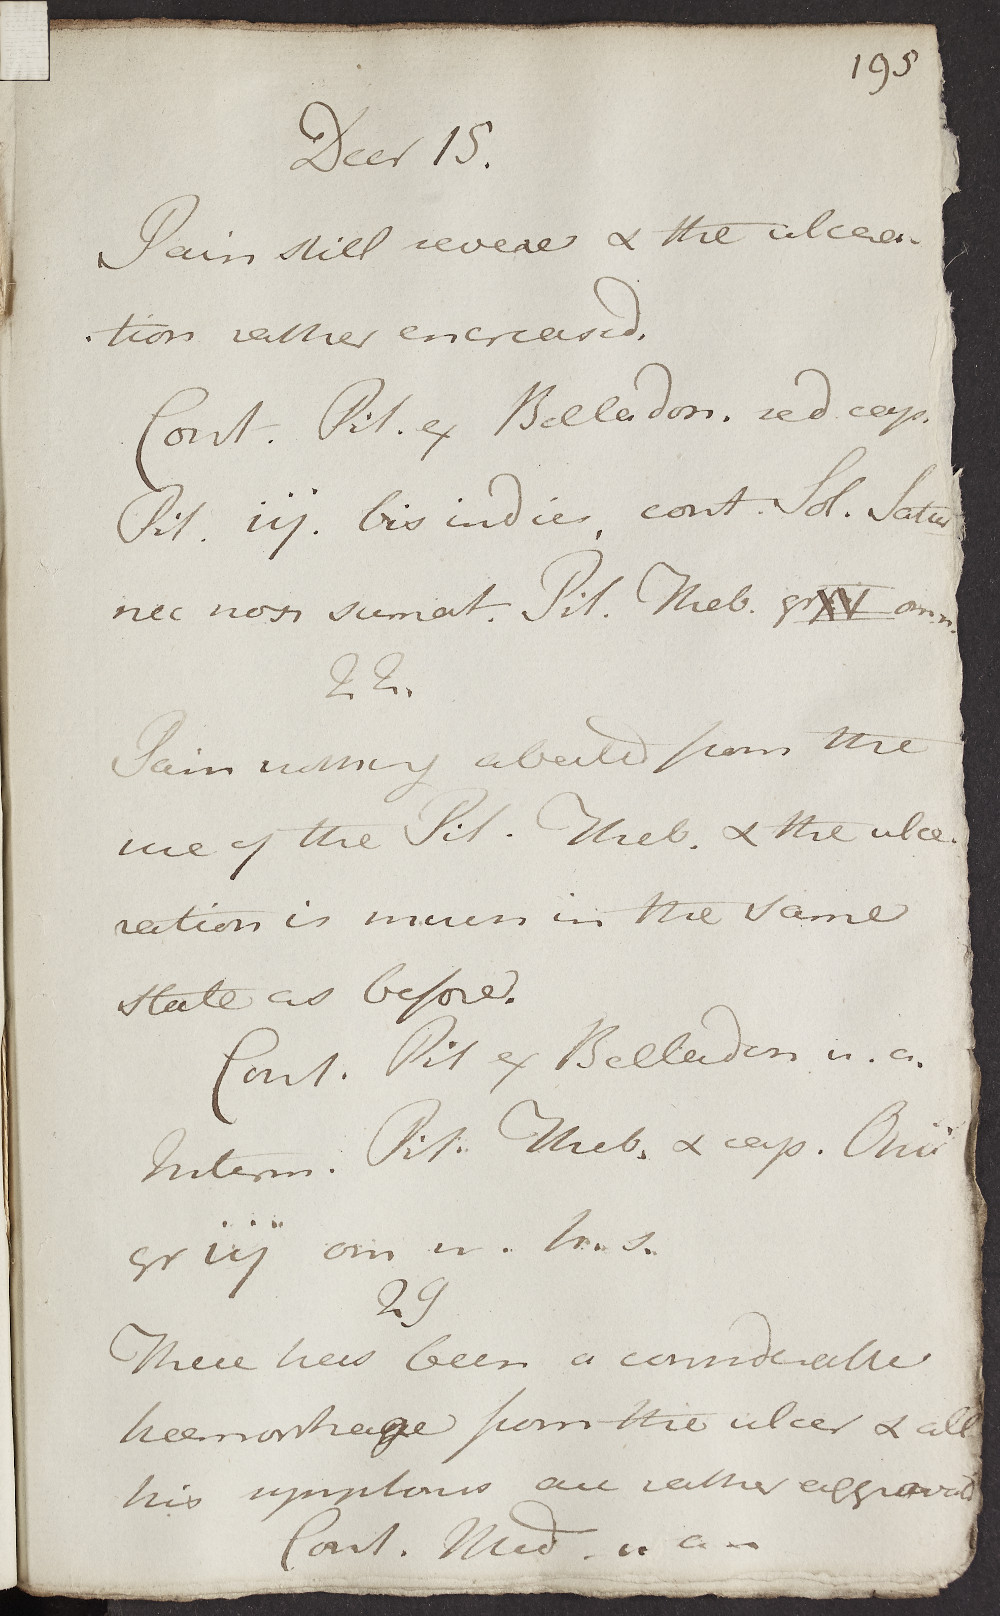 195
Decr 15.
Pain still severe & the ulcera-
-tion rather encreased.
Cont. Pil. ex Belladon. sed cap.
Pil. iij. bis indies, cont. Sol. Satur
nec non sumat. Pil. Theb. gr XV om.n.
22.
Pain nothing abated from the
use of the Pil. Theb. & the ulce-
ration is much in the same
state as before.
Cont. Pil ex Belladon u. a.
Interm. Pil. Theb. & cap. Opii
gr iij om n. h. s.
29
There has been a considerable
heemorhage from the ulcer & all
his symptoms are rather aggravatd
Cont. Med. u a